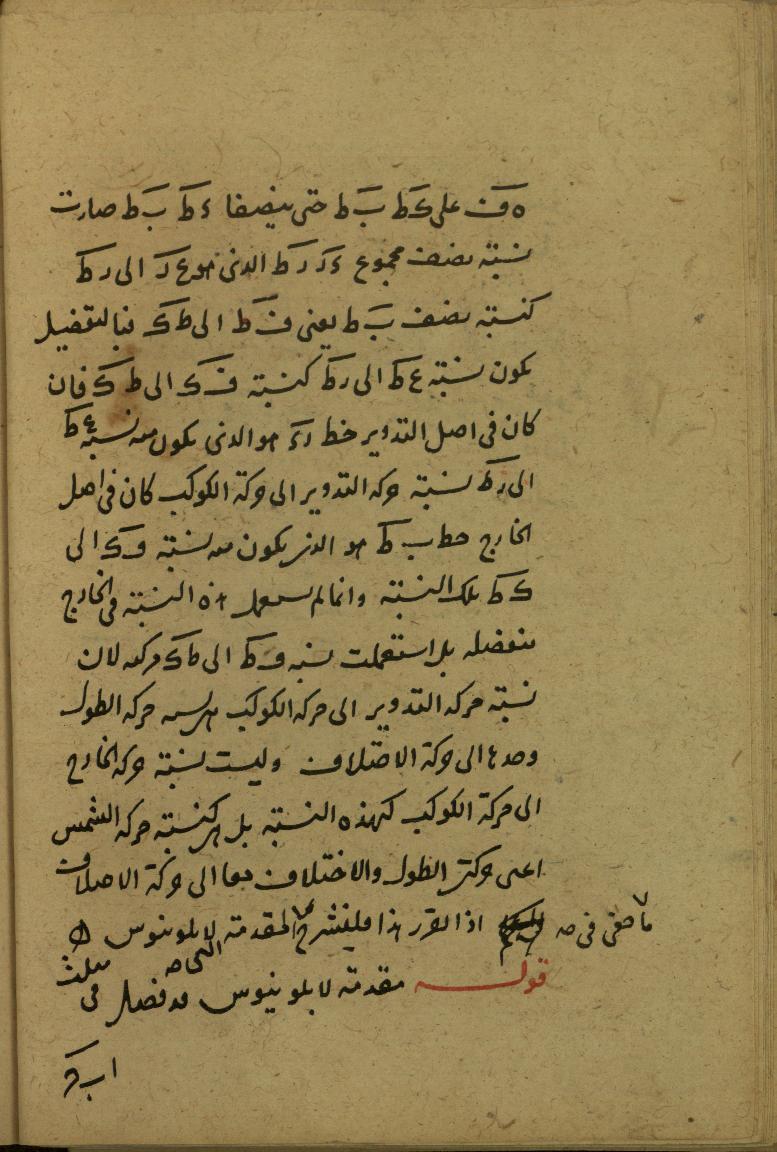 ه ف ن على ك ط ب ط حتى ينصفا ء ط ب ط صارت
نسبته نصف مجموع ء ر ر ط الذى هو ع ر الى ر ط
كنسبته نصف ب ط يعنى ف ط الى ط ك فبالتفضيل
يكون نسبته ع ط الى ر ط كنسبته ف ك الى ط ك فان
كان فى اصل التدوير خط ر ء هو الذى يكون معه نسبه ع ط
الى ر ط نسبته حركه التدوير الى حركة الكوكب كان فى اصل
الخارج خط ب ط هو الذى يكون معه نسبته ف ك الى
ك ط تلك النسبته وانما لم يستعمل هذه النسبته فى الخارج
منفصله بل استعملت نسبه ف ط الى ط ك مركبه لان
نسبته حركه التدوير الى حركه الكوكب هى نسبه حركه الطول
وحدها الى حركة الاختلاف وليست نسبته حركه الخارج
الى حركة الكوكب كهذه النسبته بل هى كنسبته حركه الشمس
اعنى حركتى الطول والاختلاف معا الى حركة الاختلاف
اذا تقرر هذا فلنشرح المقدمته لابلونيوس
قوله مقدمته لابلونيوس قد فصل فى مثلث
ا ب ح